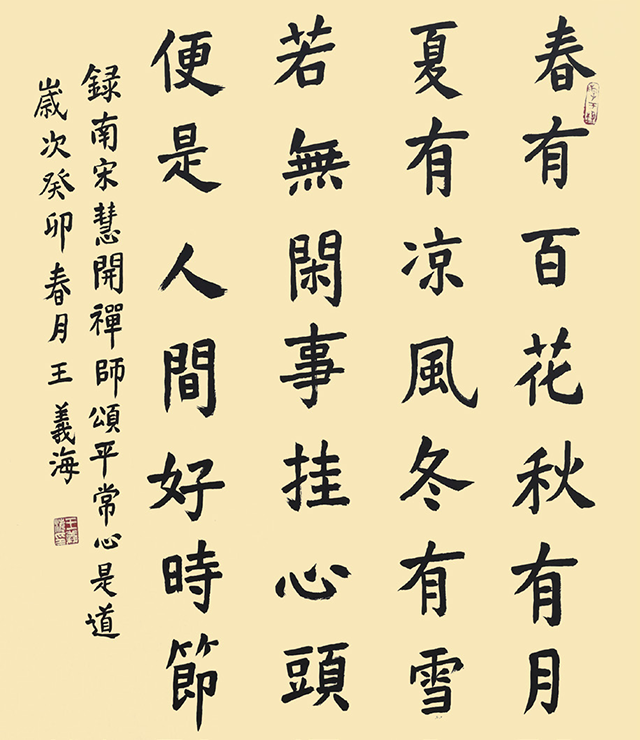 春有百花秋有月
夏有凉風冬有雪
若無閑事挂心頭
便是人間好時節
録南宋慧開禪師頌平常心是道
歲次癸卯春月王義海